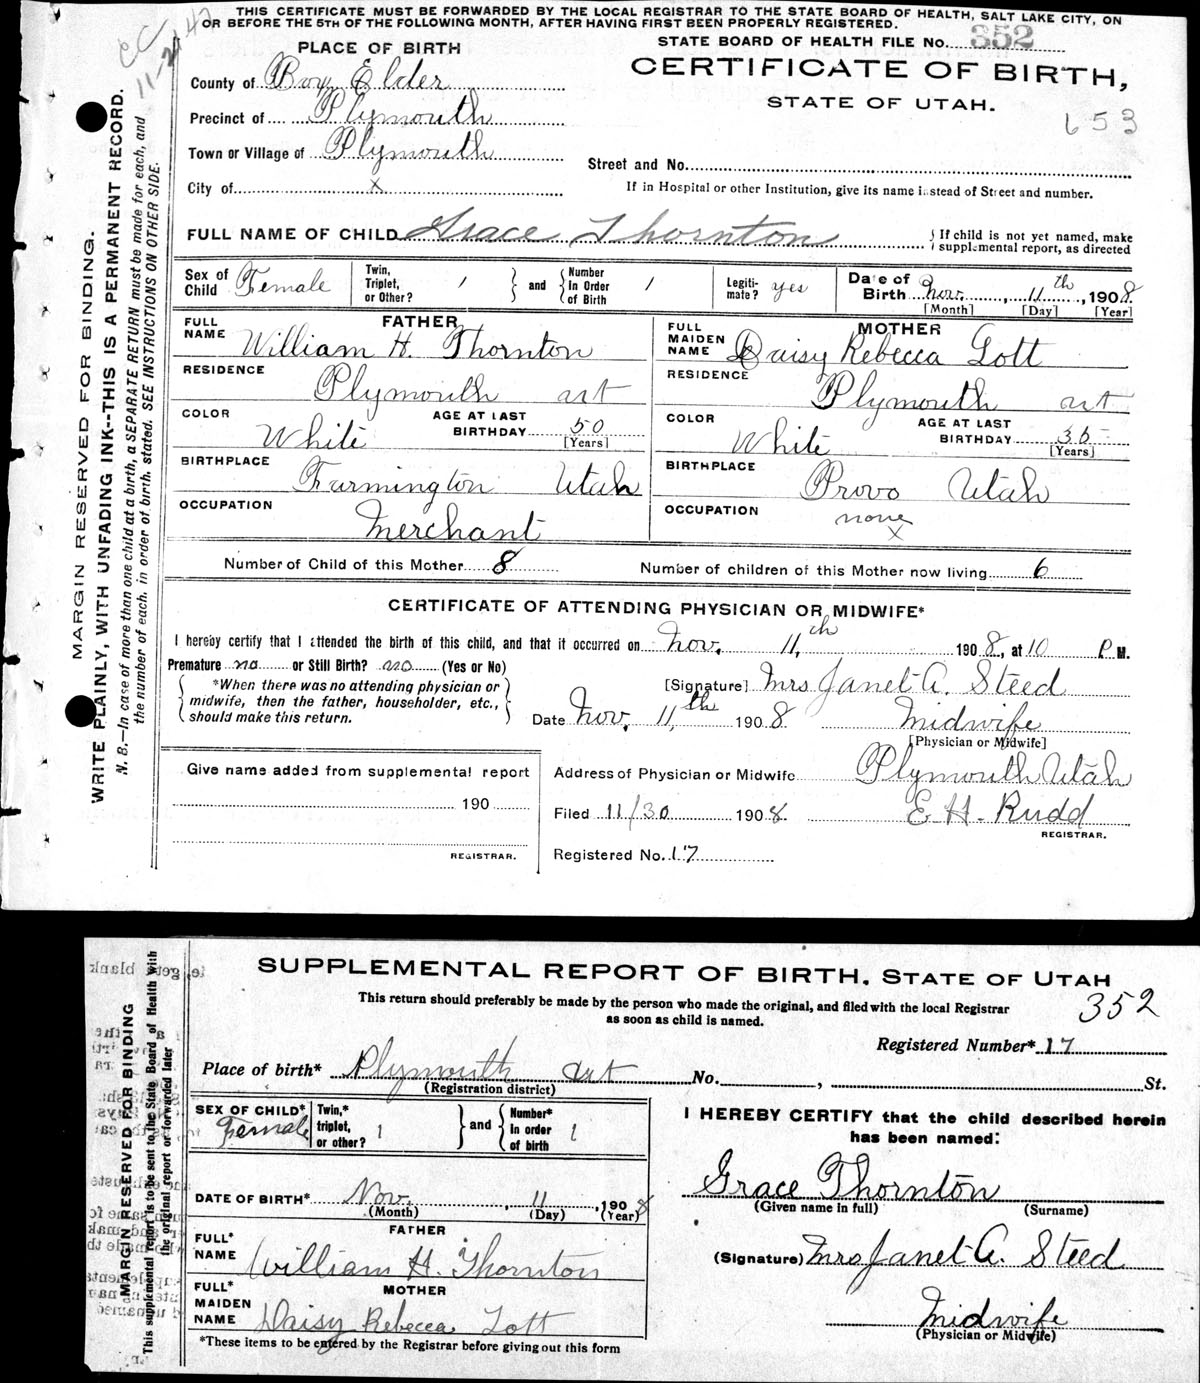 THIS CERTIFICATE MUST BE FORWARDED BY THE LOCAL REGISTRAR TO THE STATE BOARD OF HEALTH, SALT LAKE CITY, ON
OR BEFORE THE 5TH OF THE FOLLOWING MONTH, AFTER HAVING FIRST BEEN PROPERLY REGISTERED.
PLACE OF BIRTH
STATE BOARD OF HEALTH FILE No. 352
County of Box Elder
CERTIFICATE OF BIRTH,
STATE OF UTAH.
Precinct of Plymouth
653
Town or Village of Plymouth
Street and No.
City of x
If in Hospital or other Institution, give its name instead of Street and number.
FULL NAME OF CHILD Grace Thornton
{ If child is not yet named, make
supplemental report, as directed
Sex of Child Female
Twin, Triplet, or Other? 1
and
Number In Order of Birth 1
Legitimate? yes
Date of Birth Nov. 11th, 1908
[Month] [Day] [Year]
FATHER
FULL NAME William H. Thornton
MOTHER
FULL MAIDEN NAME Daisy Rebecca Lott
RESIDENCE Plymouth ut
RESIDENCE Plymouth ut
COLOR White
AGE AT LAST BIRTHDAY 50 [Years]
COLOR White
AGE AT LAST BIRTHDAY 35 [Years]
BIRTHPLACE Farmington Utah
BIRTHPLACE Provo Utah
OCCUPATION Merchant
OCCUPATION none
x
Number of Child of this Mother 8
Number of children of this Mother now living 6
CERTIFICATE OF ATTENDING PHYSICIAN OR MIDWIFE*
I hereby certify that I attended the birth of this child, and that it occurred on Nov. 11,th 1908, at 10 P.M.
Premature no or Still Birth? no (Yes or No)
*When there was no attending physician or
midwife, then the father, householder, etc.,
should make this return.
[Signature] Mrs Janet A. Steed
Date Nov. 11,th 1908
Midwife
[Physician or Midwife]
Give name added from supplemental report
190
REGISTRAR.
Address of Physician or Midwife Plymouth Utah
Filed 11/30 1908. E H. Rudd
REGISTRAR.
Registered No. 17
MARGIN RESERVED FOR BINDING.
WRITE PLAINLY, WITH UNFADING INK--THIS IS A PERMANENT RECORD.
N. B.—In case of more than one child at a birth, a SEPARATE RETURN must be made for each, and
the number of each, in order of birth, stated. SEE INSTRUCTIONS ON OTHER SIDE.
SUPPLEMENTAL REPORT OF BIRTH, STATE OF UTAH
This return should preferably be made by the person who made the original, and filed with the local Registrar
as soon as child is named.
352
Registered Number* 17
Place of birth* Plymouth ut No. , St.
(Registration district)
SEX OF CHILD* Female
Twin,* triplet, or other? 1
and
Number* In order of birth 1
I HEREBY CERTIFY that the child described herein
has been named:
Grace Thornton
(Given name in full) (Surname)
DATE OF BIRTH* Nov. 11, 1908
(Month) (Day) (Year)
FATHER
FULL* NAME William H. Thornton
(Signature) Mrs Janet A. Steed
MOTHER
FULL* MAIDEN NAME Daisy Rebecca Lott
Midwife
(Physician or Midwife)
*These items to be entered by the Registrar before giving out this form
MARGIN RESERVED FOR BINDING
This supplemental report is to be sent to the State Board of Health with
the original report or forwarded later